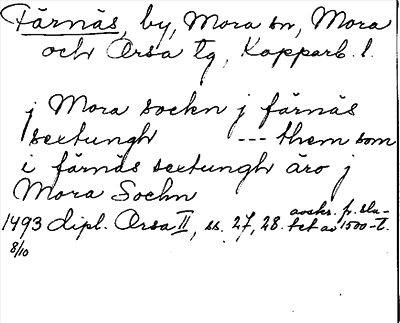 Färnäs, by, Mora sn, Mora
och Orsa tg, Kopparb. l.
j Mora sockn j färnäs
sextungh --- them som
i färnäs sextungh äro j
Mora Sochn
1493 dipl. Orsa II, ss. 27, 28. avskr. fr. slu-
8/10 tet av 1500-t.